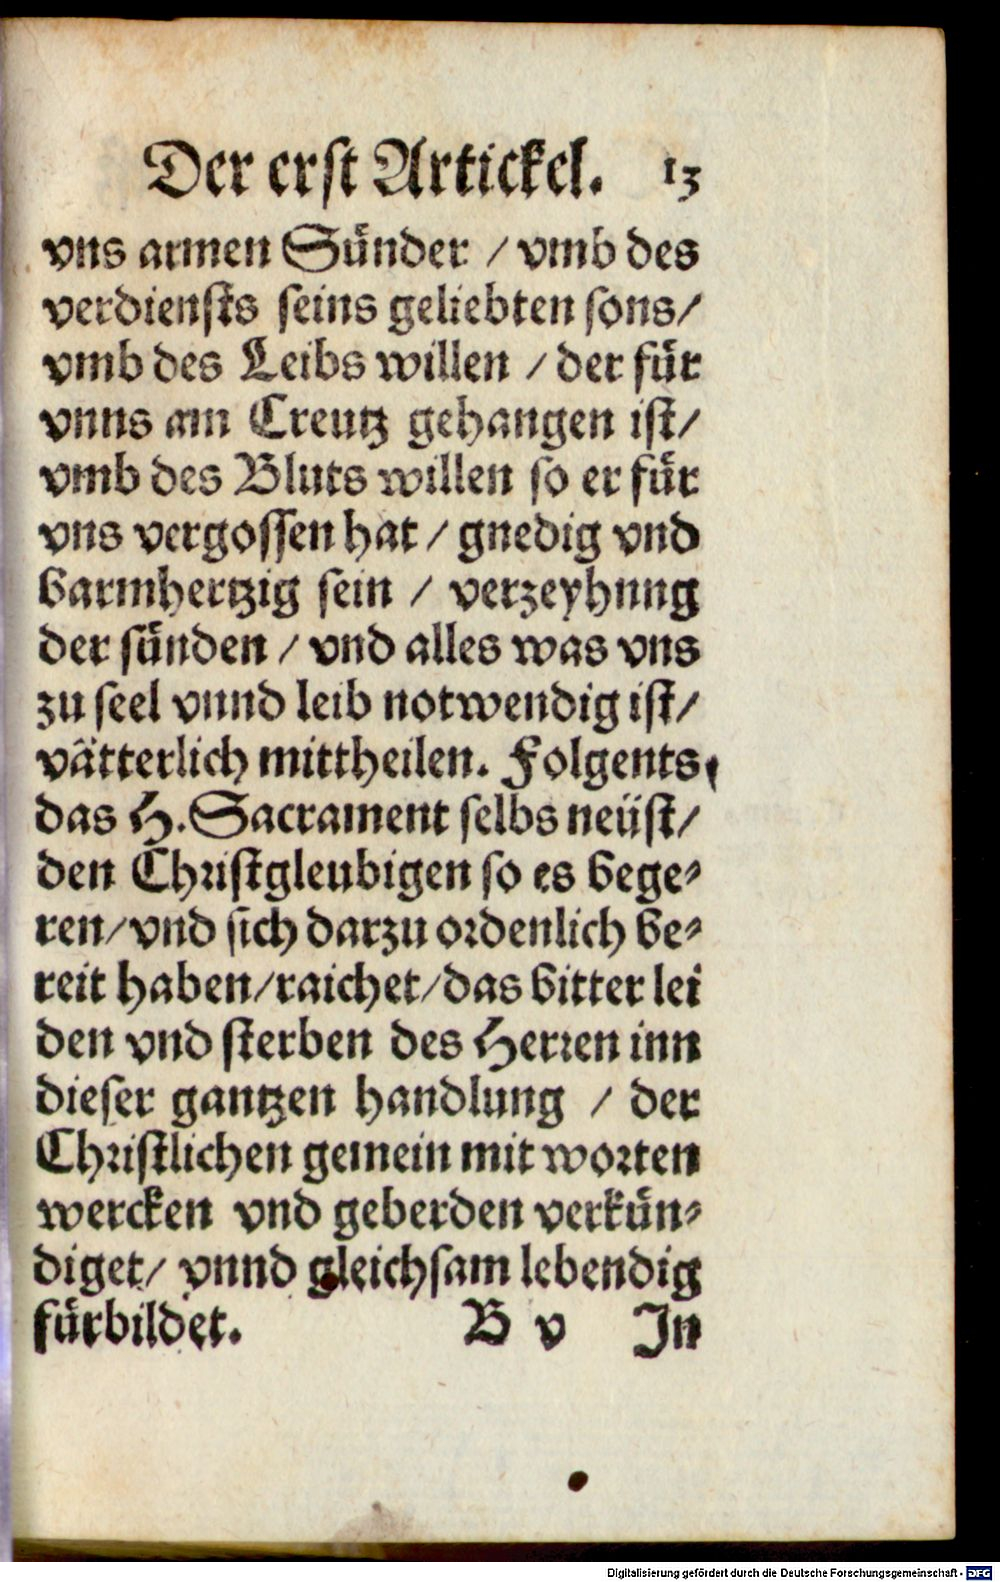 Der erst Artickel. 13
vns armen Sünder / vmb des
verdiensts seins geliebten sons/
vmb des Leibs willen / der für
vnns am Creutz gehangen ist/
vmb des Bluts willen so er für
vns vergossen hat / gnedig vnd
barmhertzig sein / verzeyhung
der sünden / vnd alles was vns
zu seel vnnd leib notwendig ist/
vätterlich mittheilen. Folgents
das H. Sacrament selbs neüst/
den Christgleubigen so es bege-
ren/vnd sich darzu ordenlich be-
reit haben/raichet/das bitter lei
den vnd sterben des Herren inn
dieser gantzen handlung / der
Christlichen gemein mit worten
wercken vnd geberden verkün-
diget/ vnnd gleichsam lebendig
fürbildet. B v In
Digitalisierung gefördert durch die Deutsche Forschungsgemeinschaft - DFG